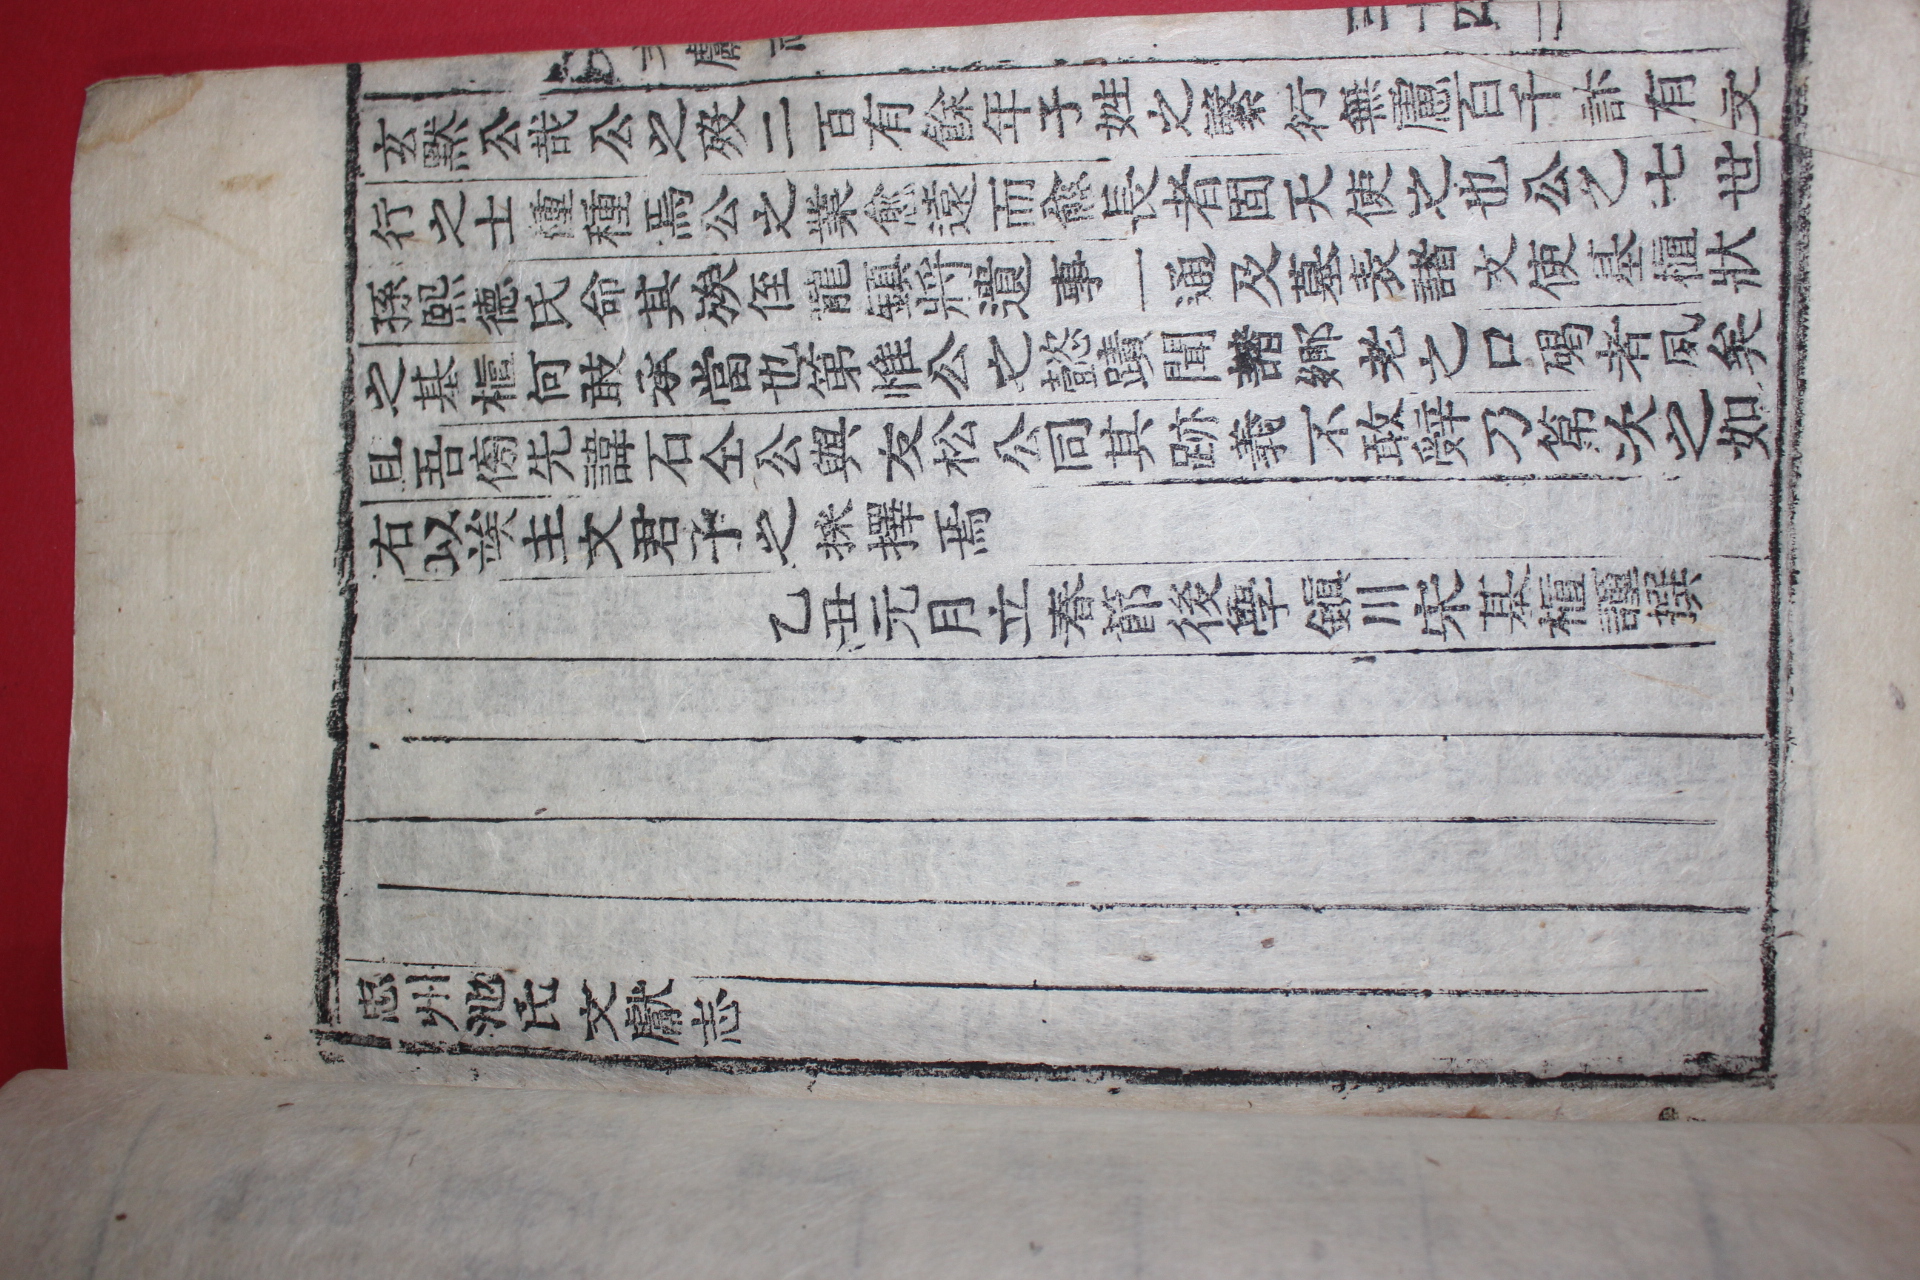 文獻志 三十四 二
玄默公哉公之歿二百有餘年子姓之蕃衍無慮百千計有文
行之士種種焉公之業愈遠而愈長者固天使之也公之七世
孫熙德氏命其族侄龍鎭將遺事一通及墓表諸文使基植狀
之基植何敢承當也第惟公之懿蹟聞諸鄕老之口碣者夙矣
且吾傍先諱石仝公與友松公同其跡義不敢辭乃第次之如
右以竢主文君子之採擇焉
乙丑元月立春節後學鎭川宋基植謹撰
忠州池氏文獻志